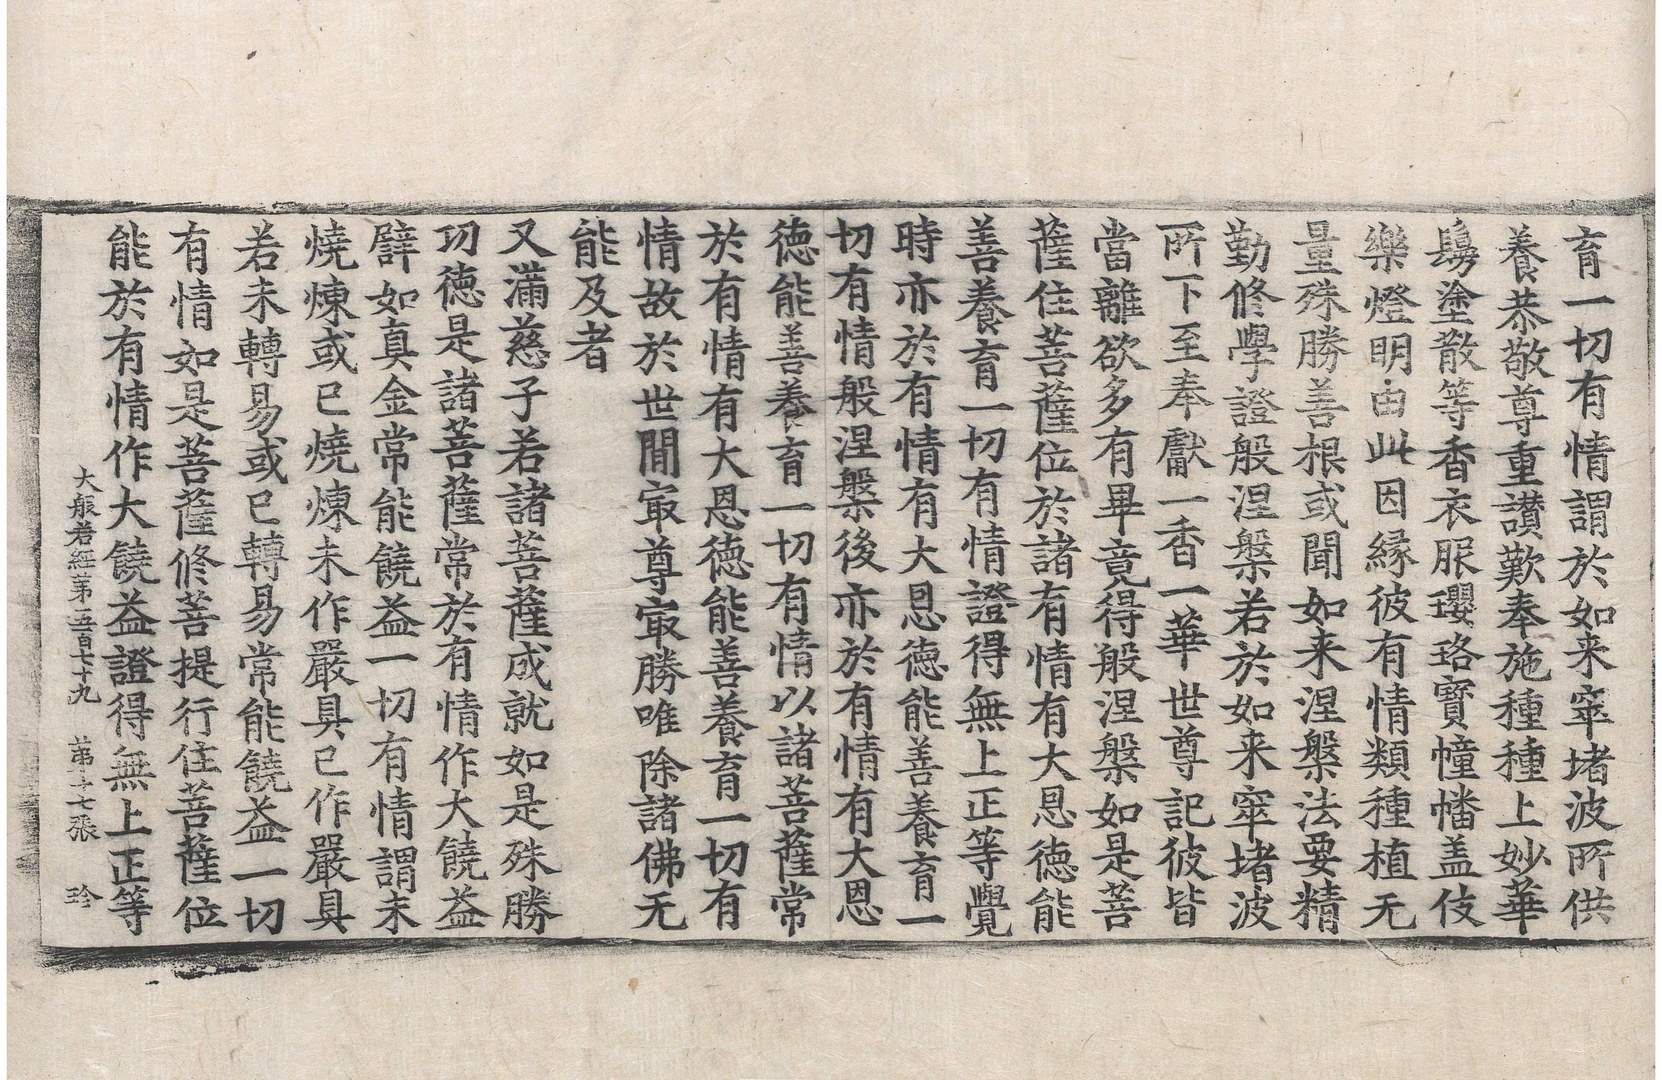 育一切有情謂於如来窣堵波所供
養恭敬尊重讃歎奉施種種上妙華
鬘塗散等香衣服瓔珞寶幢幡盖伎
樂燈明由此因縁彼有情類種植无
量殊勝善根或聞如来涅槃法要精
勤修學證般涅槃若於如来窣堵波
所下至奉獻一香一華世尊記彼皆
當離欲多有畢竟得般涅槃如是菩
薩住菩薩位於諸有情有大恩德能
善養育一切有情證得無上正等覺
時亦於有情有大恩德能善養育一
切有情般涅槃後亦於有情有大恩
德能善養育一切有情以諸菩薩常
於有情有大恩德能善養育一切有
情故於世間㝡尊㝡勝唯除諸佛无
能及者
又滿慈子若諸菩薩成就如是殊勝
功德是諸菩薩常於有情作大饒益
譬如真金常能饒益一切有情謂未
燒煉或已燒煉未作嚴具已作嚴具
若未轉易或已轉易常能饒益一切
有情如是菩薩修菩提行住菩薩位
能於有情作大饒益證得無上正等
大般若經苐五百七十九 苐十七張 珎